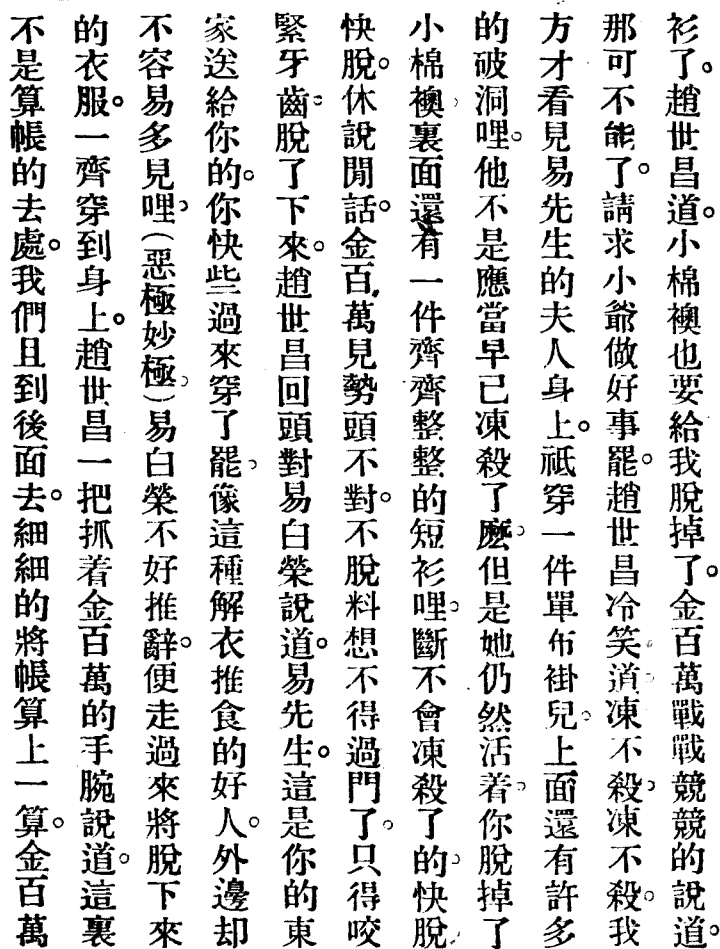 衫了。趙世昌道。小棉襖也要給我脫掉了。金百萬戰戰競競的說道。
那可不能了。請求小爺做好事罷。趙世昌冷笑道。凍不殺。凍不殺。我
方才看見易先生的夫人身上。祗穿一件單布褂兒。上面還有許多
的破洞哩。他不是應當早已凍殺了麽。但是她仍然活着。你脫掉了
小棉襖。裏面還有一件齊齊整整的短衫哩。斷不會凍殺了的。快脫。
快脫。休說閒話。金百萬見勢頭不對。不脫料想不得過門了。只得咬
緊牙齒。脫了下來。趙世昌回頭對易白榮說道。易先生。這是你的東
家送給你的。你快些過來穿了罷。像這種解衣推食的好人。外邊却
不容易多見哩。（惡極妙極。）易白榮不好推辭。便走過來將脫下來
的衣服。一齊穿到身上。趙世昌一把抓着金百萬的手腕說道。這裏
不是算帳的去處。我們且到後面去。細細的將帳算上一算。金百萬